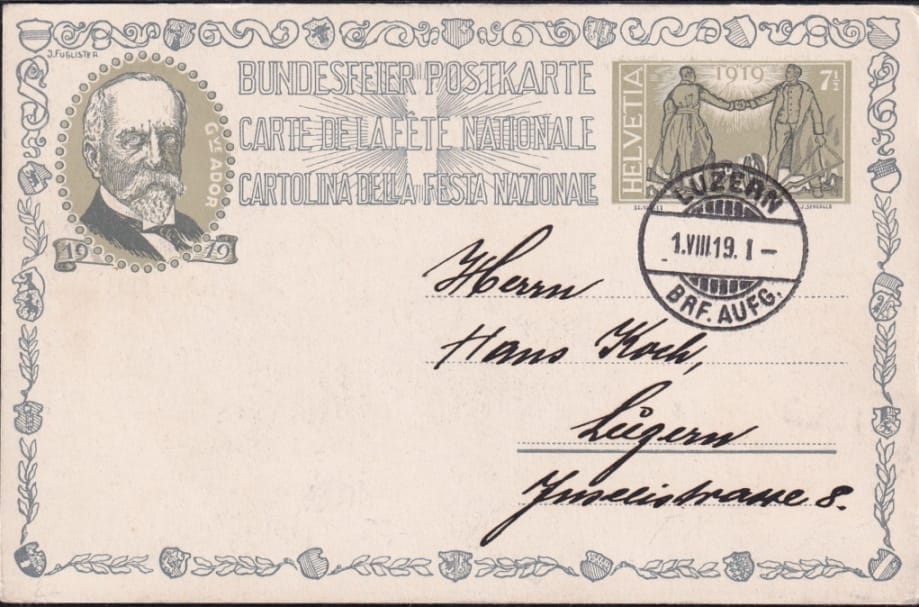 J. FÜGLISTER
Gve ADOR
1919
BUNDESFEIER POSTKARTE
CARTE DE LA FÊTE NATIONALE
CARTOLINA DELLA FESTA NAZIONALE
HELVETIA
1919
7½
LUZERN
1.VIII.19. I –
BRF. AUFG.
Herrn
Hans Koch,
Luzern
Inselistrasse 8.